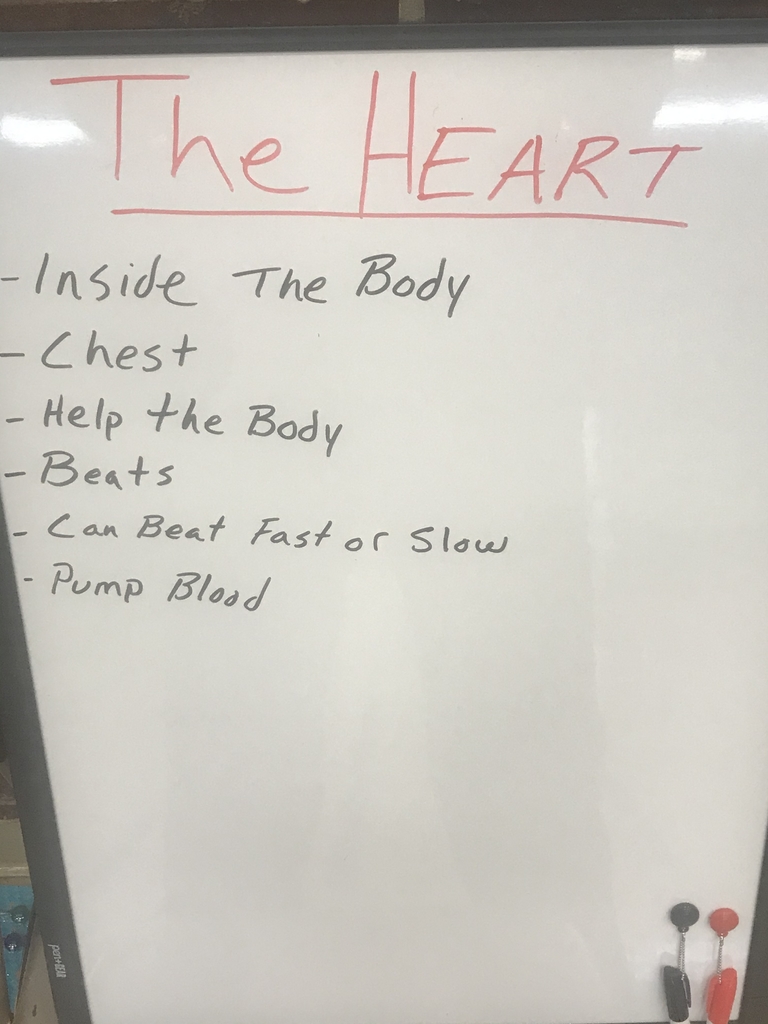 The HEART
- Inside The Body
- Chest
- Help the Body
- Beats
- Can Beat Fast or Slow
- Pump Blood